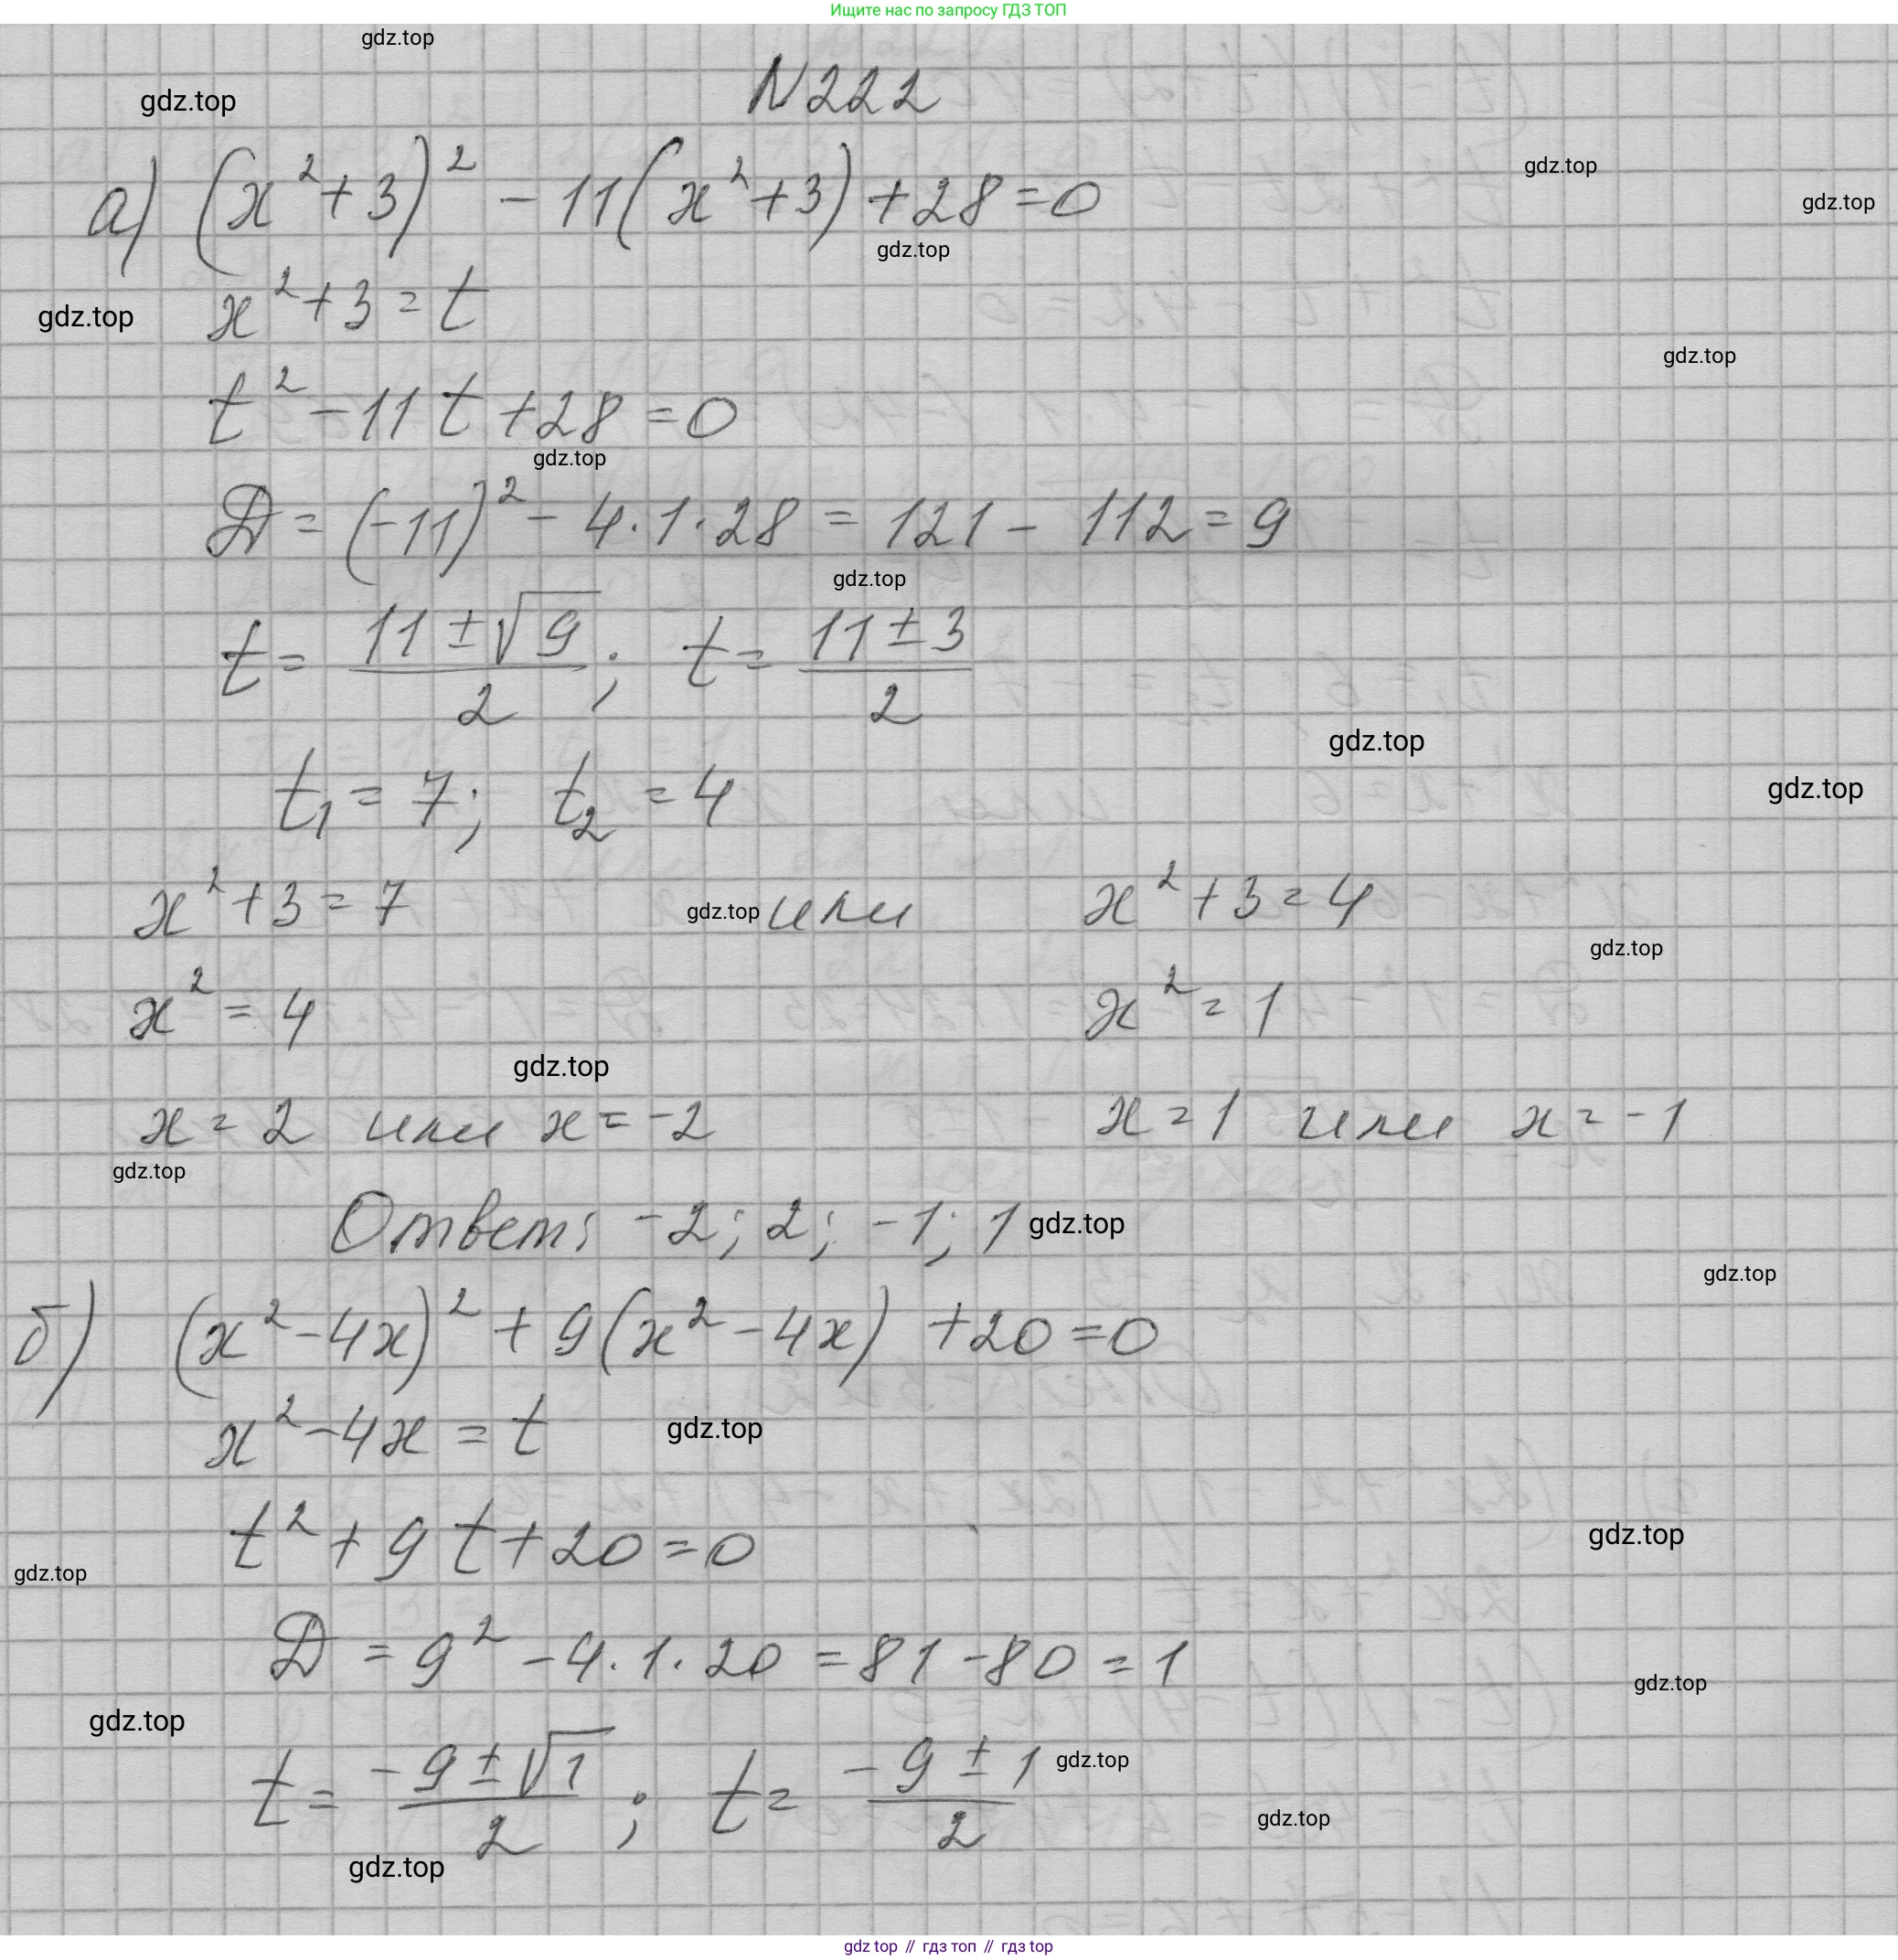 Ищите нас по запросу ГДЗ ТОП
gdz.top
N222
gdz.top
а) (x²+3)² - 11(x²+3) + 28 = 0
gdz.top
gdz.top
gdz.top
x²+3 = t
gdz.top
gdz.top
t² - 11t + 28 = 0
gdz.top
D = (-11)² - 4·1·28 = 121 - 112 = 9
gdz.top
t = (11 ± √9)/2 ; t = (11 ± 3)/2
gdz.top
t₁ = 7; t₂ = 4
gdz.top
x²+3 = 7 gdz.top или x²+3 = 4
gdz.top
x² = 4 x² = 1
gdz.top
x = 2 или x = -2 x = 1 или x = -1
gdz.top
Ответ: -2; 2; -1; 1 gdz.top
gdz.top
б) (x²-4x)² + 9(x²-4x) + 20 = 0
x²-4x = t gdz.top
t² + 9t + 20 = 0
gdz.top
gdz.top
D = 9² - 4·1·20 = 81 - 80 = 1
gdz.top
gdz.top
t = (-9 ± √1)/2 ; t = (-9 ± 1)/2 gdz.top
gdz.top
gdz.top
gdz top // гдз топ // гдз top